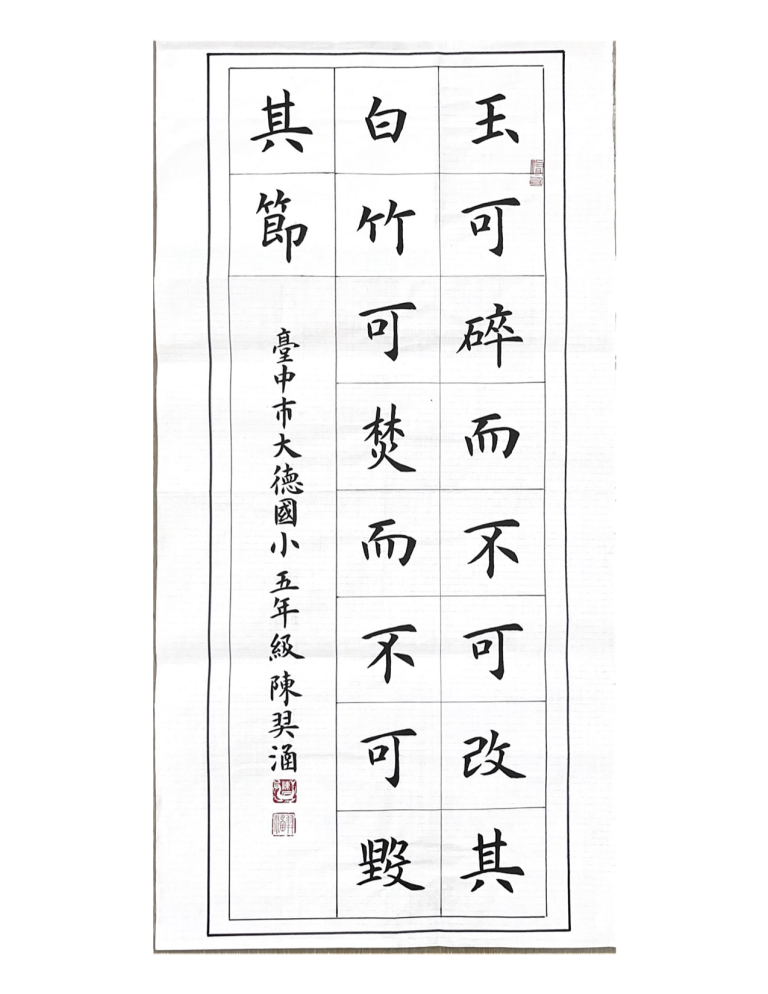 玉可碎而不可改其
白竹可焚而不可毀
其節
臺中市大德國小五年級陳羿涵